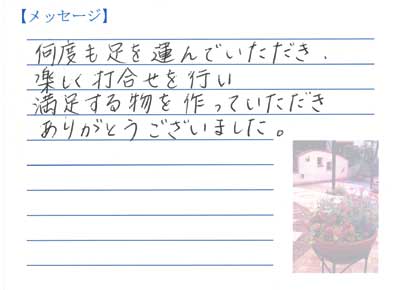 【メッセージ】
何度も足を運んでいただき、
楽しく打合せを行い
満足する物を作っていただき
ありがとうございました。